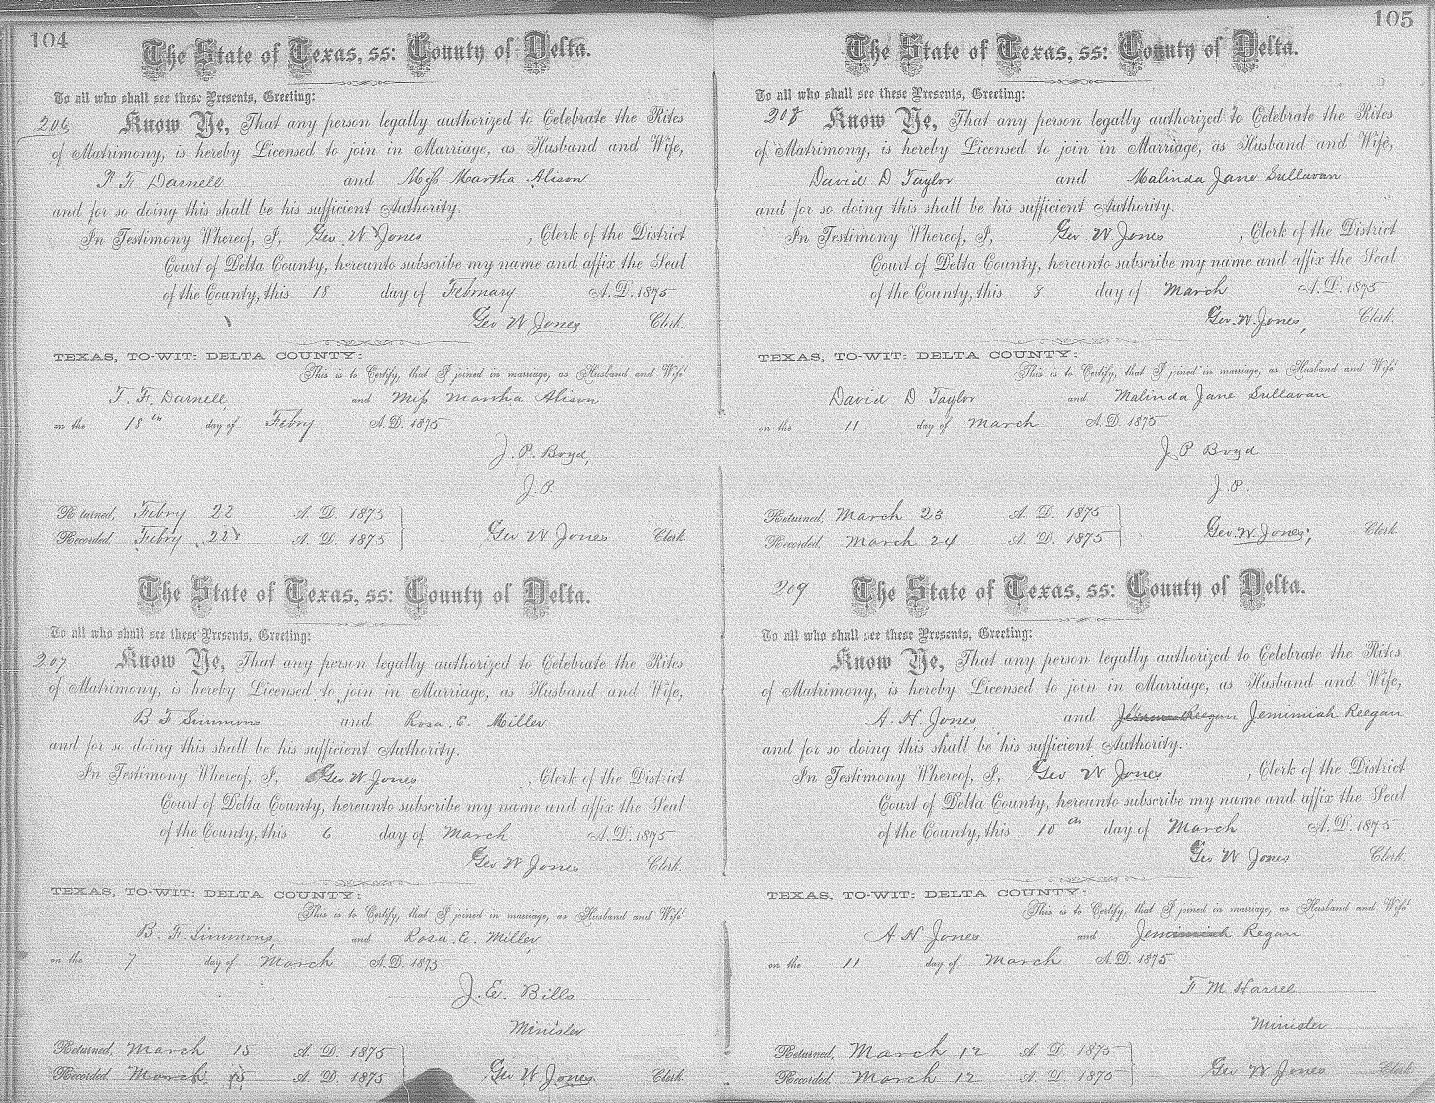 104
The State of Texas, ss: County of Delta.
To all who shall see these Presents, Greeting:
206 Know Ye, That any person legally authorized to Celebrate the Rites
of Matrimony, is hereby Licensed to join in Marriage, as Husband and Wife,
T. F. Darnell and Miss Martha Alison
and for so doing this shall be his sufficient Authority.
In Testimony Whereof, I, Geo W Jones, Clerk of the District
Court of Delta County, hereunto subscribe my name and affix the Seal
of the County, this 18 day of February A.D. 1875
Geo W Jones Clerk.
TEXAS, TO-WIT: DELTA COUNTY:
This is to Certify, that I joined in marriage, as Husband and Wife
T. F. Darnell and Miss Martha Alison
on the 18th day of Febry A.D. 1875
J. P. Boyd,
J.P.
Returned, Febry 22 A. D. 1875
Recorded, Febry 22 A. D. 1875 Geo W Jones Clerk
The State of Texas, ss: County of Delta.
To all who shall see these Presents, Greeting:
207 Know Ye, That any person legally authorized to Celebrate the Rites
of Matrimony, is hereby Licensed to join in Marriage, as Husband and Wife,
B F Simmons and Rosa. E. Miller
and for so doing this shall be his sufficient Authority.
In Testimony Whereof, I, Geo W Jones, Clerk of the District
Court of Delta County, hereunto subscribe my name and affix the Seal
of the County, this 6 day of March A.D. 1875
Geo W Jones Clerk.
TEXAS, TO-WIT: DELTA COUNTY:
This is to Certify, that I joined in marriage, as Husband and Wife
B. F. Simmons, and Rosa. E. Miller
on the 7 day of March A.D. 1875
J. E. Bills
Minister
Returned, March 15 A. D. 1875
Recorded, March 15 A. D. 1875 Geo W Jones. Clerk.
105
The State of Texas, ss: County of Delta.
To all who shall see these Presents, Greeting:
208 Know Ye, That any person legally authorized to Celebrate the Rites
of Matrimony, is hereby Licensed to join in Marriage, as Husband and Wife,
David D Taylor and Malinda Jane Sullavan
and for so doing this shall be his sufficient Authority.
In Testimony Whereof, I, Geo W Jones, Clerk of the District
Court of Delta County, hereunto subscribe my name and affix the Seal
of the County, this 8 day of March A.D. 1875
Geo. W. Jones, Clerk.
TEXAS, TO-WIT: DELTA COUNTY:
This is to Certify, that I joined in marriage, as Husband and Wife
David D Taylor and Malinda Jane Sullavan
on the 11 day of March A.D. 1875
J P Boyd
J.P.
Returned, March 23 A. D. 1875
Recorded, March 24 A. D. 1875 Geo. W. Jones, Clerk.
209 The State of Texas, ss: County of Delta.
To all who shall see these Presents, Greeting:
Know Ye, That any person legally authorized to Celebrate the Rites
of Matrimony, is hereby Licensed to join in Marriage, as Husband and Wife,
A. H. Jones, and Reegan Jemimiah Reegan
and for so doing this shall be his sufficient Authority.
In Testimony Whereof, I, Geo W Jones, Clerk of the District
Court of Delta County, hereunto subscribe my name and affix the Seal
of the County, this 10th day of March A.D. 1875
Geo W Jones Clerk.
TEXAS, TO-WIT: DELTA COUNTY:
This is to Certify, that I joined in marriage, as Husband and Wife
A H Jones and Jemimiah Regan
on the 11 day of March A.D. 1875
F M Harrel
Minister
Returned, March 12 A. D. 1875
Recorded, March 12 A. D. 1875 Geo W Jones Clerk.